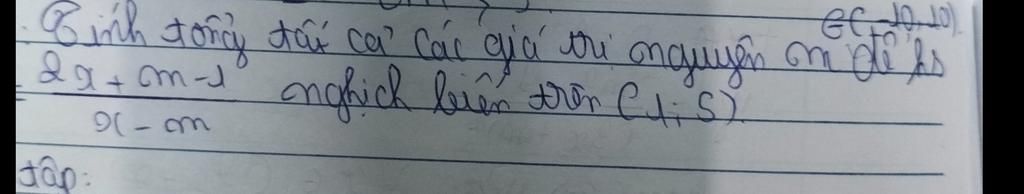 ∈(-10,10)
Tính tổng tất cả các giá trị nguyên m để hs
= 2x + m - 1 / x - m nghịch biến trên (1; 5)
tập: